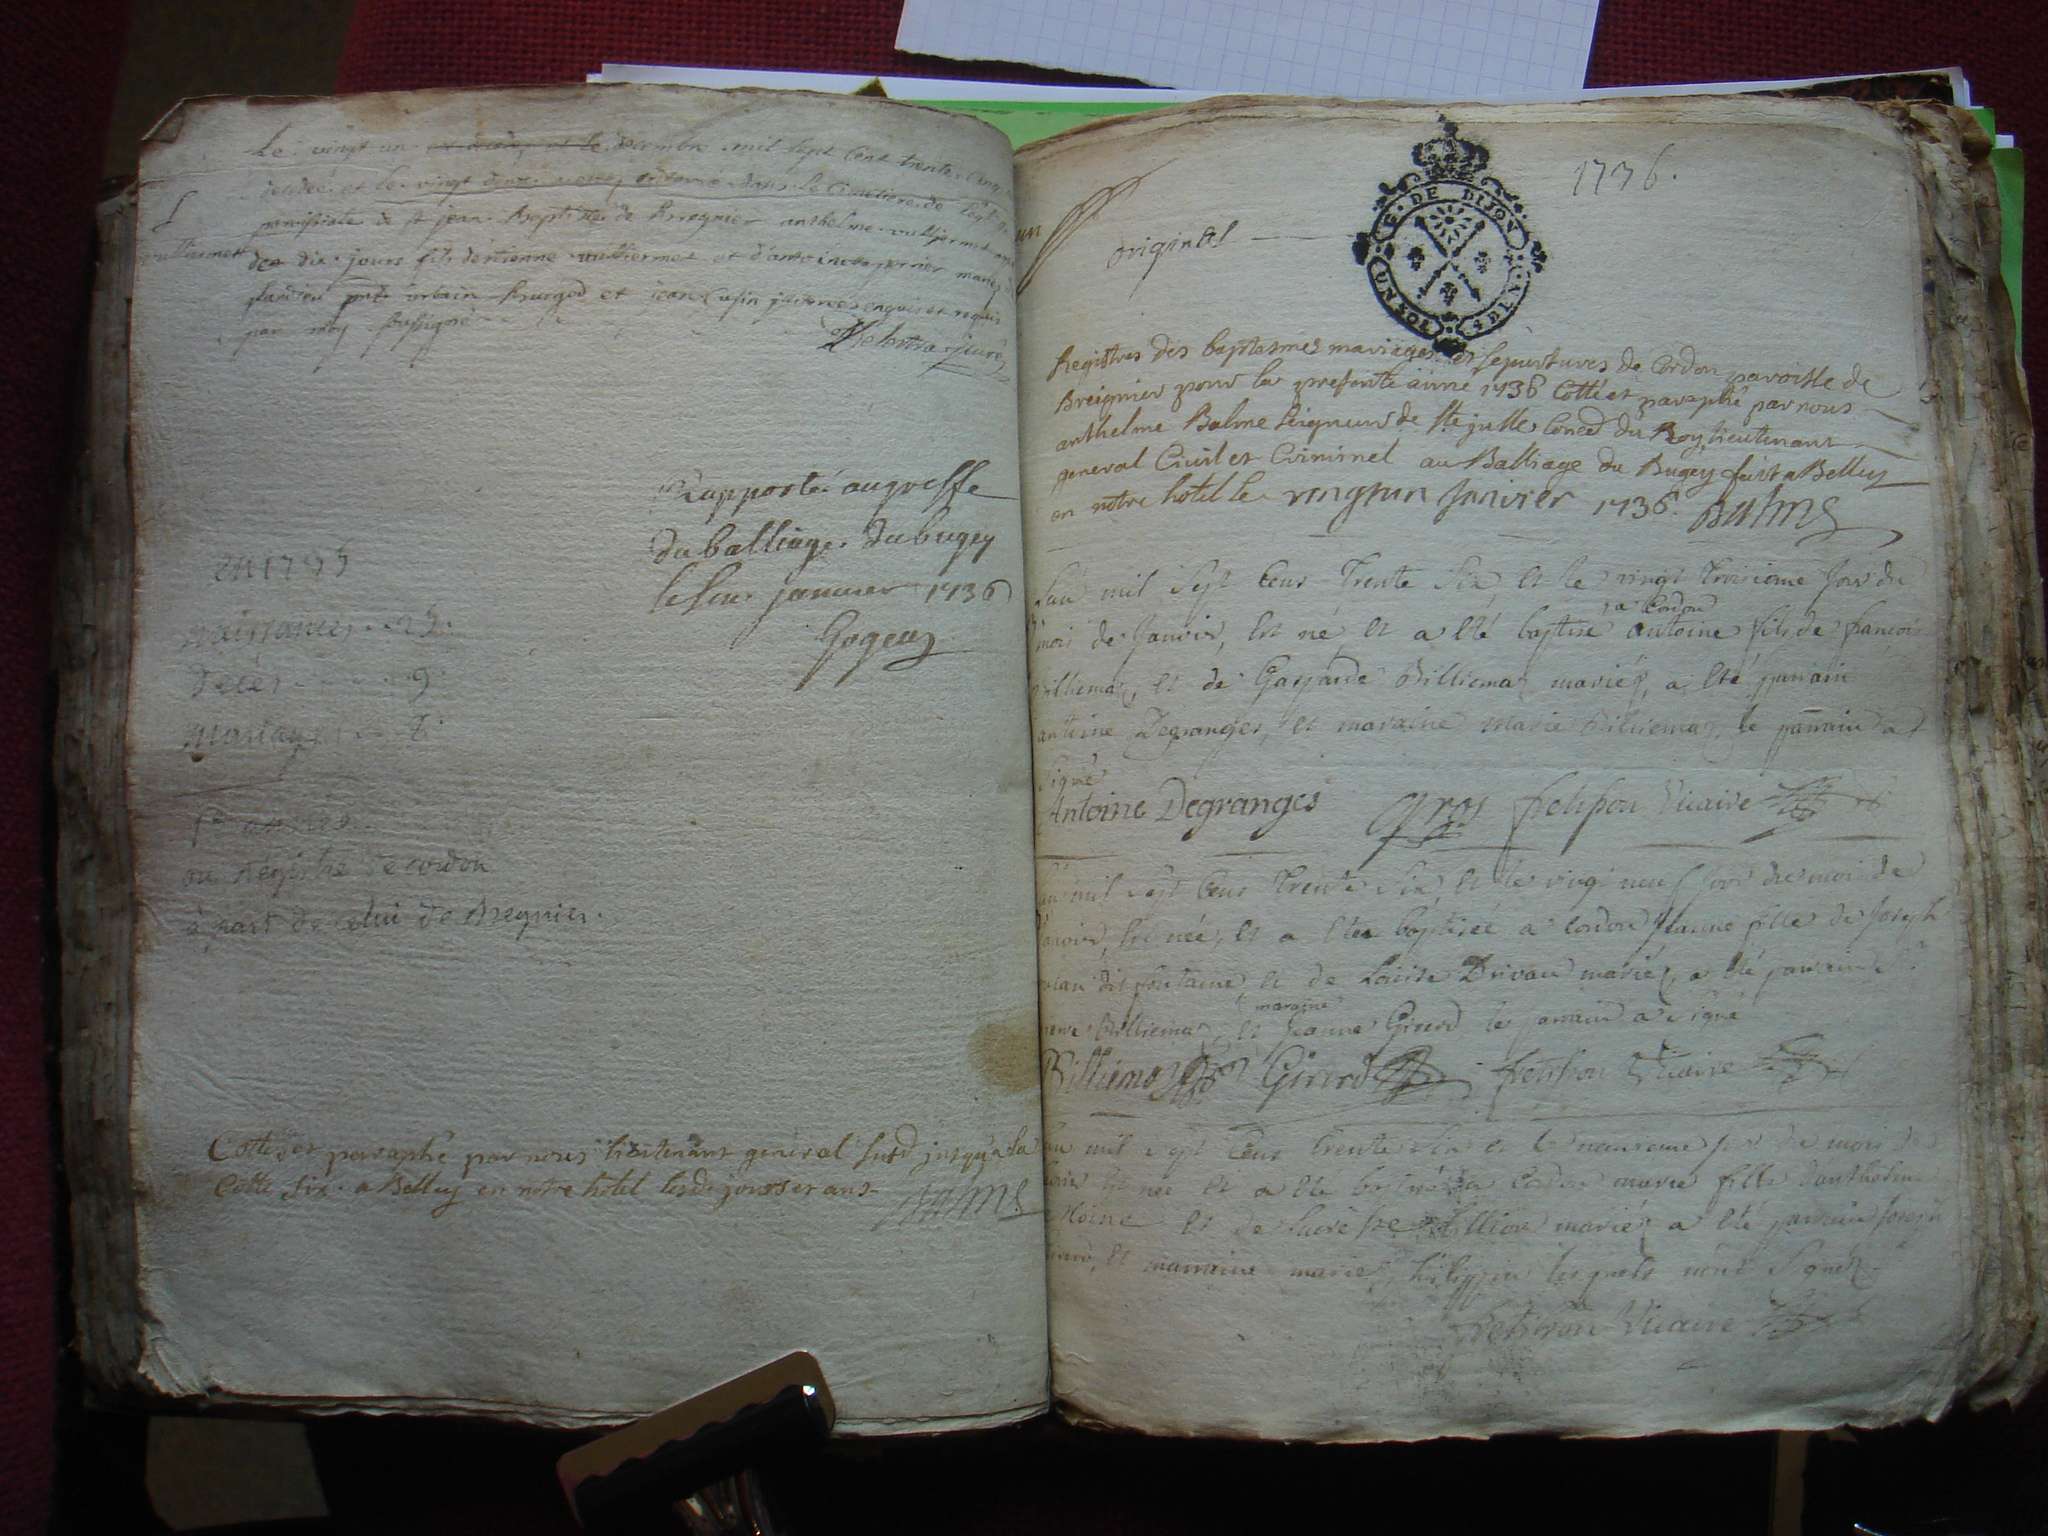 Le vingt un decembre mil sept cent trente cinq
decedé et le vingt deux enterré dans le Cimetiere de
parroissiale de st jean Baptiste de Bregnier anthelme vulliermet
vulliermet
des dix jours fils d'étienne vulliermet et d'antoinette perrier mariés
urbain Burgod et jean Cusin
par moy soussigné
curé
Rapporté au greffe
du balliage du bugey
le janvier 1736
en 1735
naissances 25
décès 9
mariages
1re année
ou registre de cordon
à part de celui de Bregnier.
Cotté et paraphé par nous lieutenant general susd jusqu'a la
Cotte six a Belley en notre hotel lesd jour et an
Balme
un
original
G. DE DIJON
UN SOL 4 DEN.
1736.
Registres des baptesmes mariages et sepultures de Cordon paroisse de
Breignier pour la presente anne 1736 Cotté et paraphé par nous
anthelme Balme seigneur de Ste julle Concer du Roy lieutenant
general Civil et Criminel au Balliage du Bugey fait a Belley
en notre hotel le vingt un janvier 1736. Balme
L'an mil sept cens trente six, et le vingt troisieme jour du
a Cordon
mois de Janvier, est né et a eté baptisé antoine fils de françois
Billiemaz, et de Gasparde Billiemaz mariés, a eté parrain
antoine Degranges, et maraine marie Billiemaz, le parrain a
signé
Antoine Degranges Gros vicaire
L'an mil sept cens trente six et le vingt neuf jour du mois de
Janvier, est née, et a etée baptisée a Cordon jeanne fille de Joseph
dit fontaine et de Loüise Drivau mariés, a eté parrain
maraine
Billiemaz, et jeanne Girerd le parrain a signé
Billiemaz Girerd vicaire
L'an mil sept cens trente six et le neuvieme jour du mois de
est née et a eté baptisée a Cordon marie fille d'anthelme
et de mariés a eté parrain joseph
et marraine marie lesquels n'ont signés
Vicaire